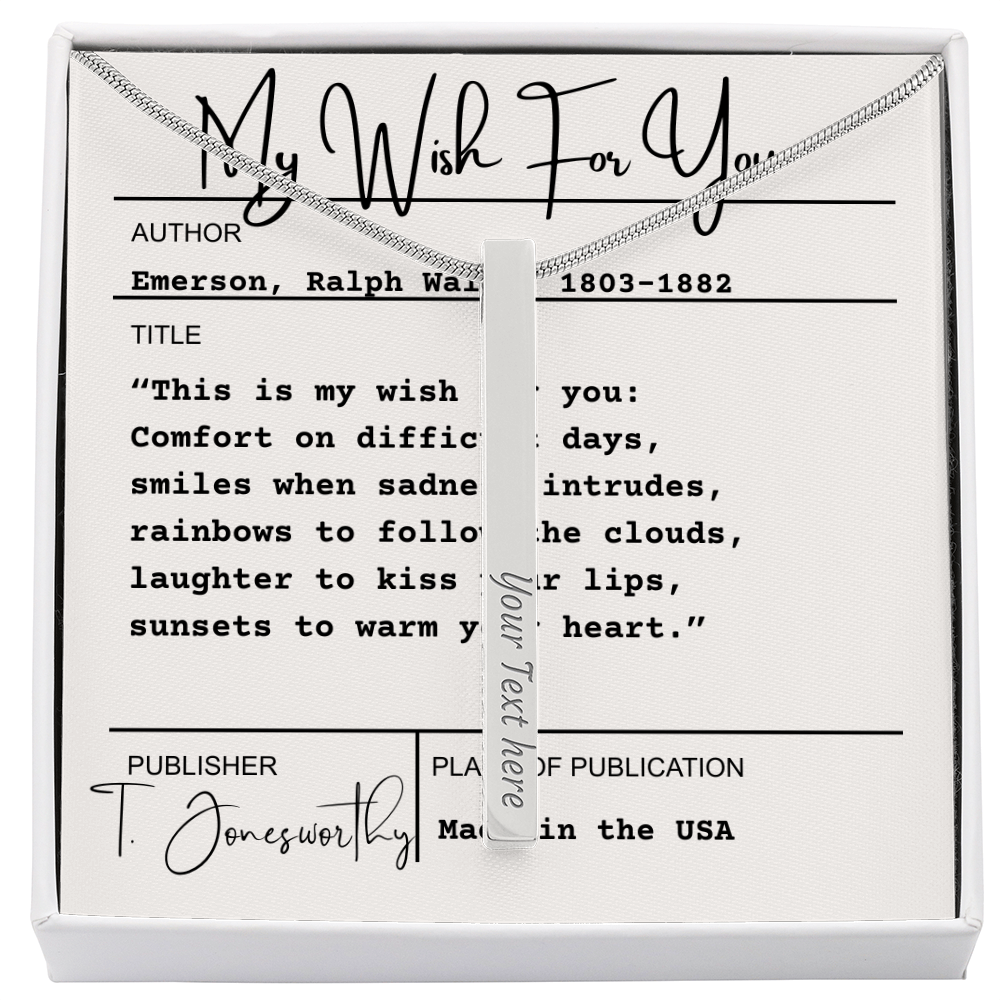 My Wish For You
AUTHOR
Emerson, Ralph Wal 1803-1882
TITLE
“This is my wish you:
Comfort on diffic days,
smiles when sadne intrudes,
rainbows to follow the clouds,
laughter to kiss your lips,
sunsets to warm your heart.”
PUBLISHER
T. Jonesworthy
PLACE OF PUBLICATION
Made in the USA
Your Text here